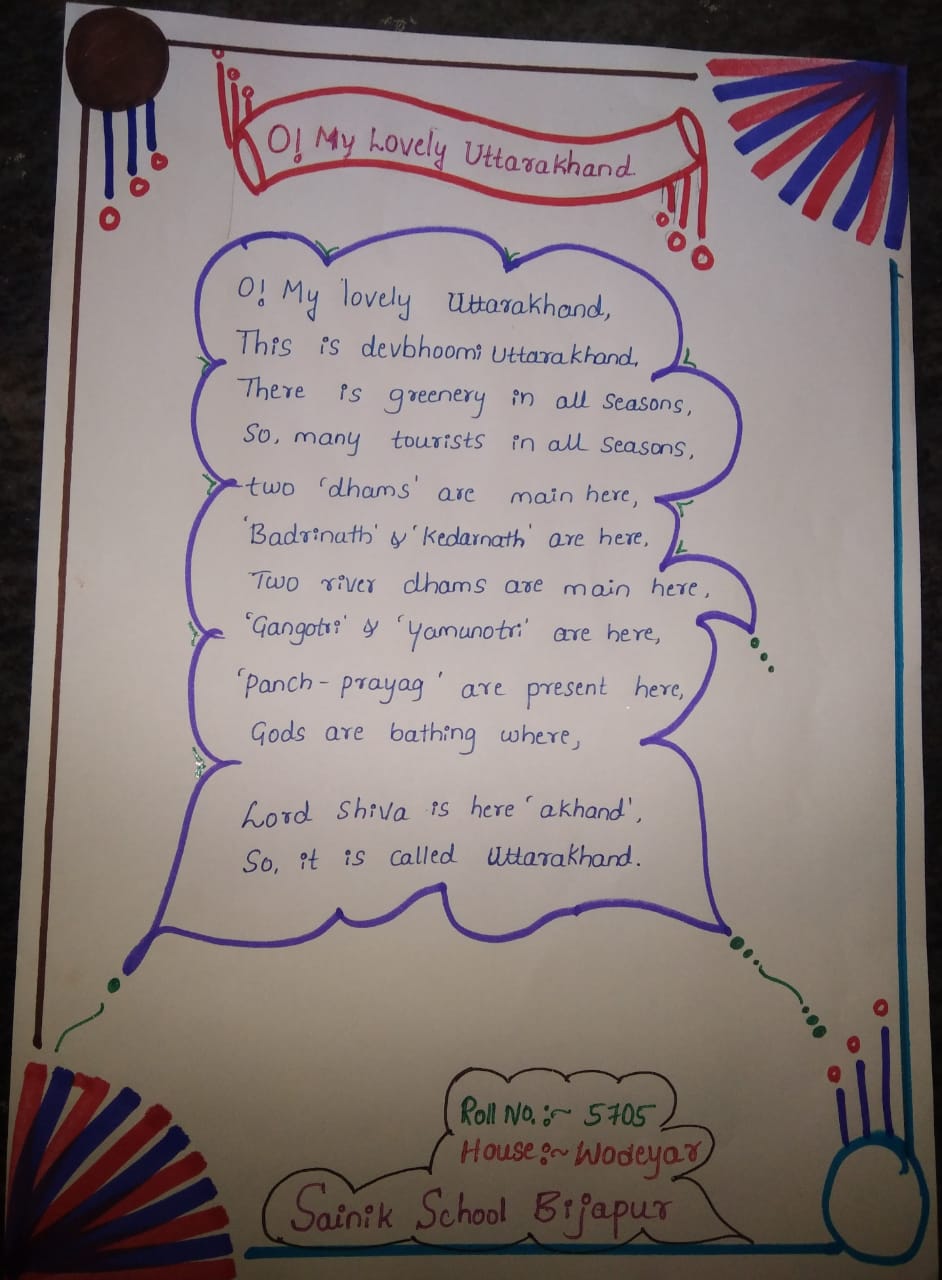 O! My Lovely Uttarakhand
O! My lovely Uttarakhand,
This is devbhoomi Uttarakhand.
There is greenery in all seasons,
So, many tourists in all seasons,
two 'dhams' are main here,
'Badrinath' & 'Kedarnath' are here,
Two river dhams are main here,
'Gangotri' & 'Yamunotri' are here,
'Panch-prayag' are present here,
Gods are bathing where,
Lord Shiva is here 'akhand',
So, it is called Uttarakhand.
Roll No.:~ 5705
House:~ Wodeyar
Sainik School Bijapur